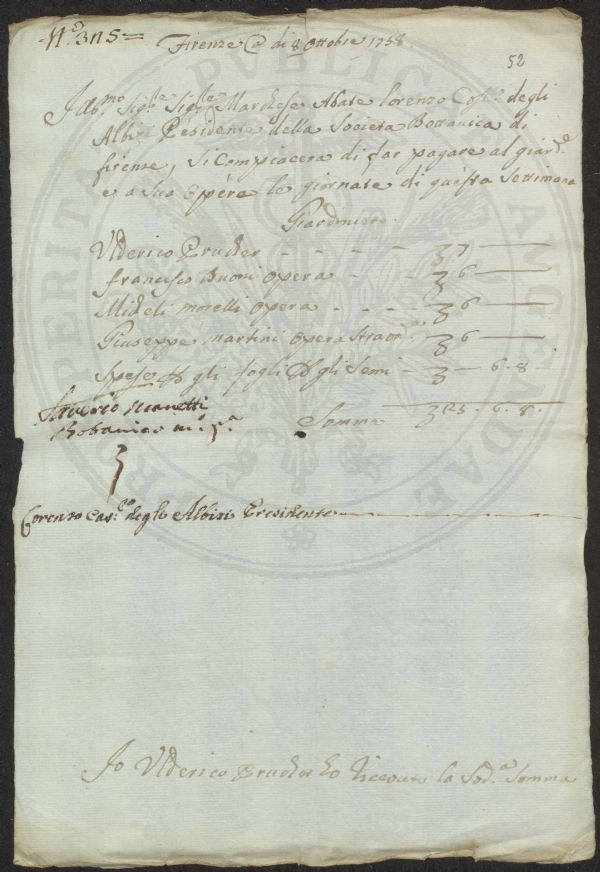 N.o 3115=
Firenze @ di 8 Ottobre 1758
52
Ill.mo Sig.re Sig.re Marchese Abate Lorenzo degli
Albizi Presidente della Societa Bottanica di
firense, Si Compiacera di far pagare al giard.e
e a Sue Opere le giornate di questa Settimana
Giardiniere
Ulderico Prucker - - - - - 7
francesco Buoni Opera - - - 6
Micheli morelli Opera - - - 6
Giuseppe martini Opera Straord.a 6
Spese gli fogli gli Semi - - 6. 8
Somma 25. 6. 8.
Saverio Manetti
Bottanico m. p.a
Lorenzo Cas.co degli Albizi Presidente
Io Ulderico Prucker ho Riceuto la Sod.a Somma
PUBLICAE
PROSPERITATI
AUGENDAE